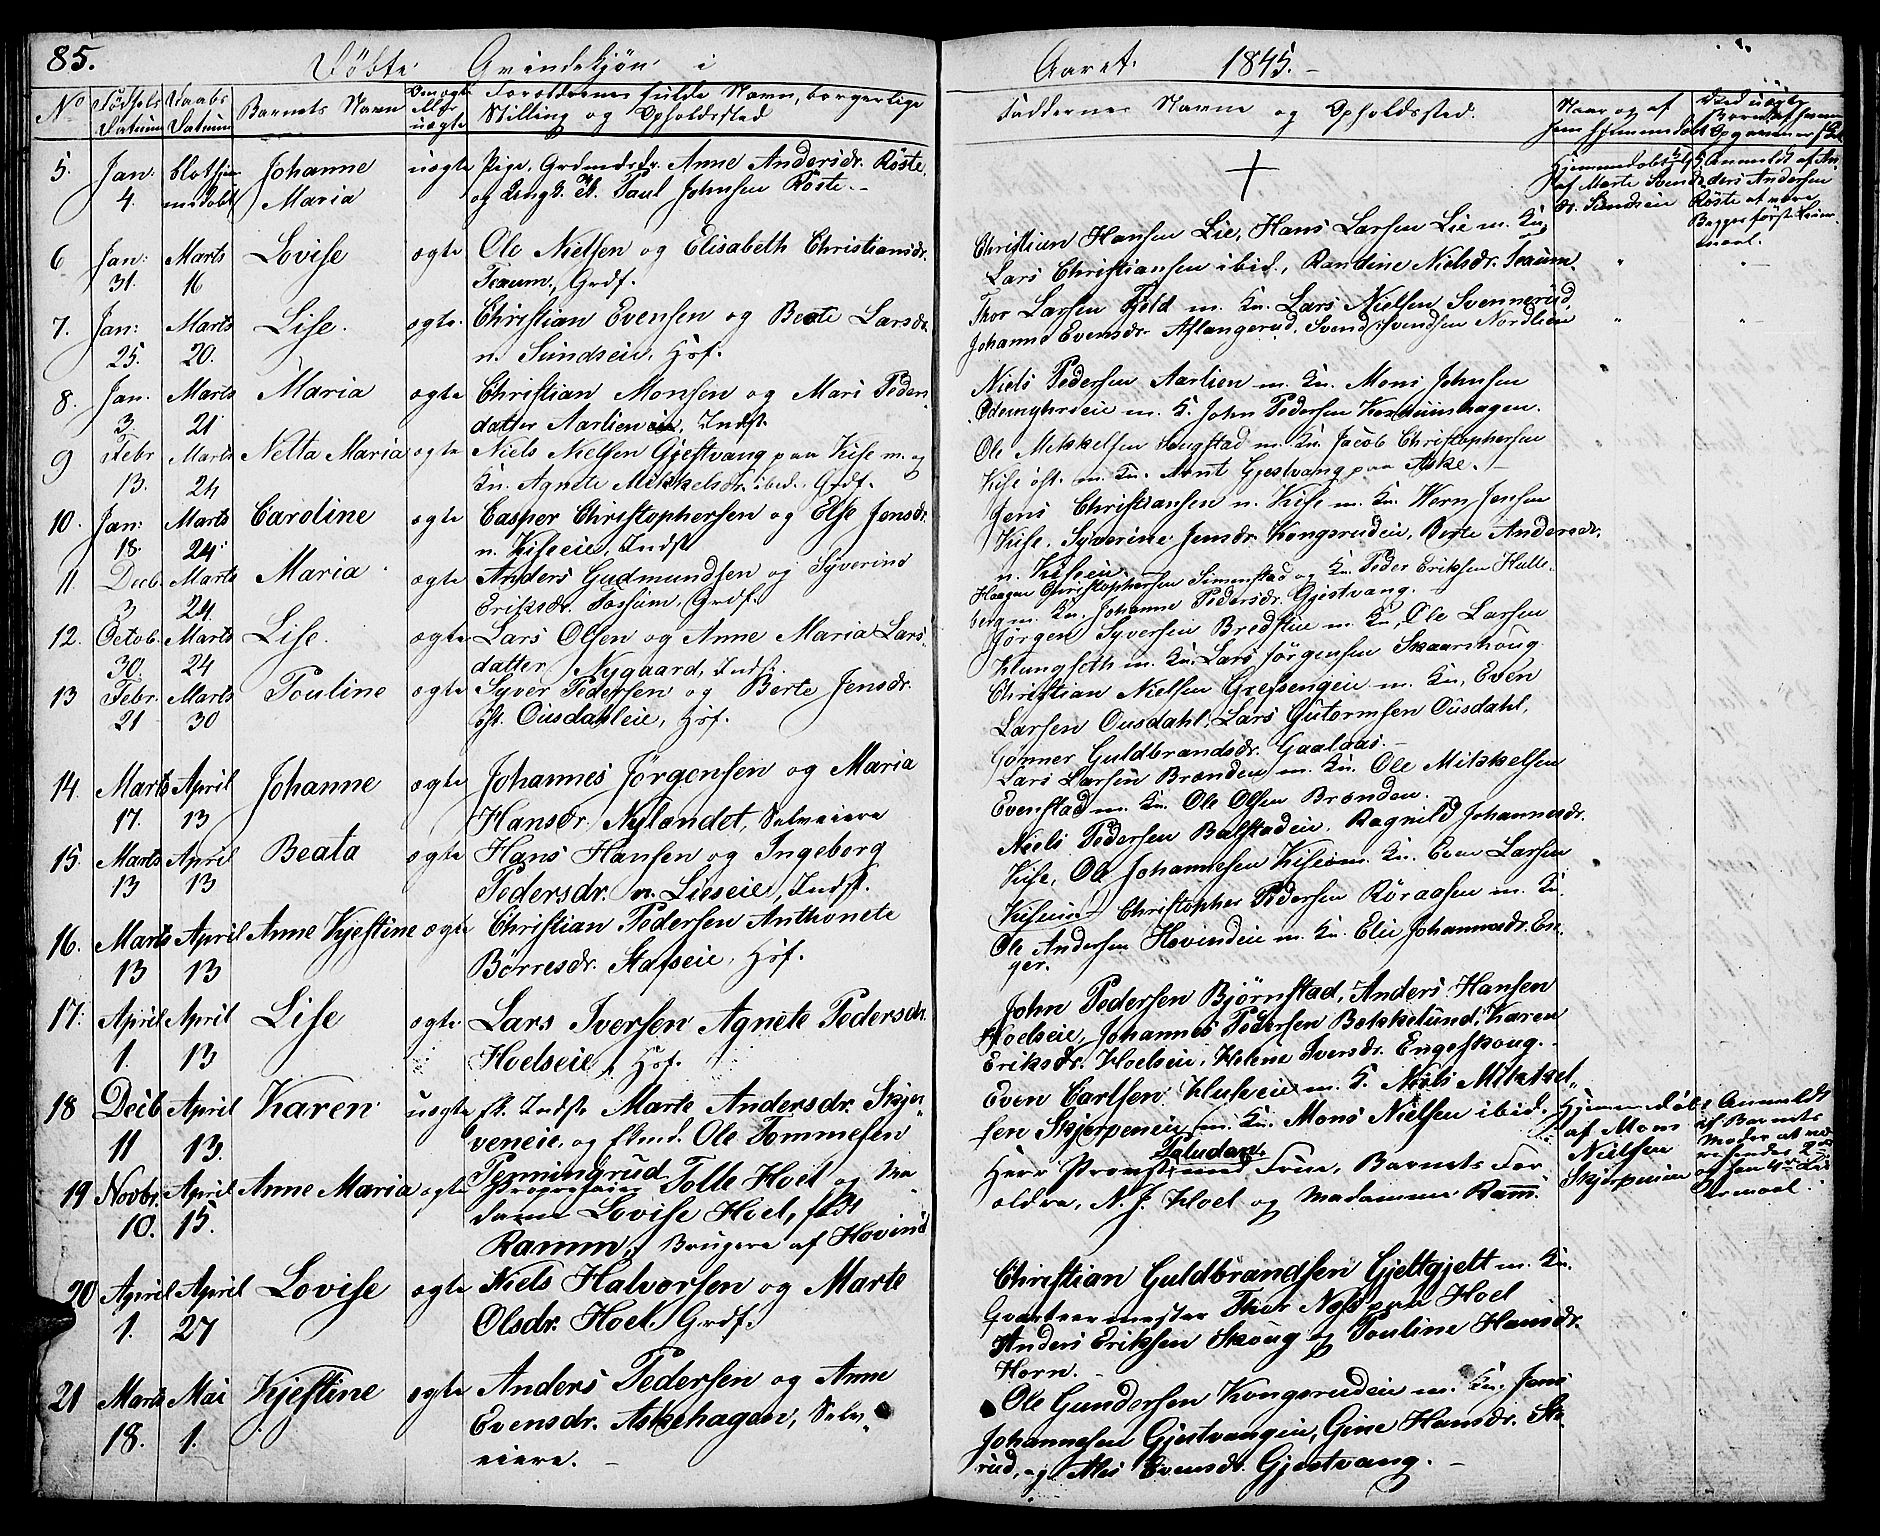 85.
Döbte Qvindekjön i Aaret 1845.
No
Födsels Datum
Daabs Datum
Barnets Navn
Om ægte eller uægte
Forældrenes fulde Navn, borgerlige Stilling og Opholdssted
Faddernes Navne og Opholdssted.
Naar og af hvem hjemmedöbt
5. Jan: 4. blot hjemmedöbt Johanne Maria uægte Pige, Grdmdsdr. Anne Andersdr. Röste,
og Ungk. Paul Johnsen Röste.
Hjemmedöbt af Marte Svendsdr. Sundseie
Anmeldt af Anders Andersen Röste at være Begges förste Leiermaal.
6 Jan: 31. Marts 16 Lovise ægte Ole Nielsen og Elisabeth Christiansdr.
Teaum, Grdf.
Christian Hansen Lie, Hans Larsen Lie m. Ku,
Lars Christiansen ibid., Randine Nielsdr. Teaum.
7. Jan: 25. Marts 20. Lise. ægte. Christian Evensen og Berte Larsdr.
n. Sundseie, Hsf.
Thor Larsen Fjeld m. Ku. Lars Nielsen Svennerud,
Johanne Evensdr. Aslangerud, Svend Svendsen Nordlien
8. Jan. 3. Marts 21 Maria ægte Christian Monsen og Mari Peders
datter Aarlieneie, Indst.
Niels Pedersen Aarlien m. Ku. Mons Johnsen
m. K. John Pedersen
9 Febr 13. Marts 24 Netta Maria ægte Niels Nielsen Gjestvang paa Kise m. og
Ku. Agnete Mikkelsdr. ibid. Grdf.
Ole Mikkelsen m. Ku. Jacob Christophersen
Kise öst. m. Ku. Arnt Gjestvang paa Aske.
10. Jan: 18. Marts 24. Caroline ægte Casper Christophersen og Else Jensdr.
n. Kiseeie, Indst
Jens Christiansen n. Kise m. Ku. Wern Jensen
Kise. Syverine Jensdr. Kongsrudeie, Berte Andersdr.
n. Kiseeie.
11. Decb. 3 Marts 24. Maria. ægte Anders Gudmundsen og Syverine
Eriksdr. Fossum, Grdf.
Haagen Christophersen Simenstad og Ku. Peder Eriksen Hulle-
berg m. Ku. Johanne Pedersdr. Gjestvang.
12. Octob. 30. Marts 24 Lise. ægte Lars Olsen og Anne Maria Lars
datter Nygaard, Indst.
Jörgen Syversen Bredstue m. Ku, Ole Larsen
Klungseth m. Ku. Lars Jörgensen Skaarshoug.
13 Febr. 21 Marts 30 Pouline ægte Syver Pedersen og Berte Jensdr.
öst. Ousdahleie, Hsf.
Christian Nielsen Grefsengeie m. Ku, Even
Larsen Ousdahl, Lars Gutormsen Ousdahl,
Gönner Guldbrandsdr. Gaalaas.
14. Marts 17. April 13 Johanne ægte Johannes Jörgensen og Maria
Hansdr. Nylandet, Selveiere
Lars Larsen Brænden m. Ku. Ole Mikkelsen
Evenstad m. Ku. Ole Olsen Brænden.
15. Marts 13 April 13 Beata ægte Hans Hansen og Ingeborg
Pedersdr. n. Lieseie, Indst.
Niels Pedersen Balstadeie. Ragnild Johannesdr.
Kise, Ole Johannesen Kiseie m. Ku. Even Larsen
Kiseeie Christopher Pedersen Röraasen m. Ku.
16. Marts 13 April 13 Anne Kjestine ægte Christian Pedersen Anthonete
Börresdr. Stafseie, Hsf.
Ole Andersen Hovindeie m. Ku. Elie Johannesdr. En-
ger.
17. April 1. April 13 Lise ægte Lars Iversen Agnete Pedersdr.
Hoelseie, Hsf.
John Pedersen Björnstad, Anders Hansen
Hoelseie, Johannes Pedersen Bekkelund, Karen
Eriksdr. Hoelseie, Helene Iversdr. Engeskoug.
18 Decb 11 April 13. Karen uægte fh. Indst. Marte Andersdr. Skjer-
veneie, og Ole Tommesen
Penningrud
Even Carlsen m. K. Niels Mikkel-
sen Skjerpeneie m. Ku. Mons Nielsen ibid.
Hjemmedöbt af Mons Nielsen Skjerpeneie
Anmeldt af Barnets Moder at være
19 Novbr. 10. April 15. Anne Maria ægte Proprietair Tolle Hoel og Ma
dame Lovise Hoel, födt
Ramm, Brugere af Hovind
Herr Provst Paludan med Frue, Barnets For
ældre, N. J. Hoel og Madamme Ramm.
20 April 1. April 27 Lovise ægte Niels Halvorsen og Marte
Olsdr. Hoel. Grdf.
Christian Guldbrandsen Gjeltgjelt m. Ku.
Qvarteermester Thor Næss paa Hoel
Anders Eriksen Skoug og Pouline Hansdr.
Horn.
21 Marts 18. Mai 1. Kjestine ægte Anders Pedersen og Anne
Evensdr. Askehagen, Selv
eiere.
Ole Gundersen Kongsrudeie m. Ku, Jens
Johannesen Gjestvangeie, Gine Hansdr. Sk-
rud, og Alis Evensdr. Gjestvang.